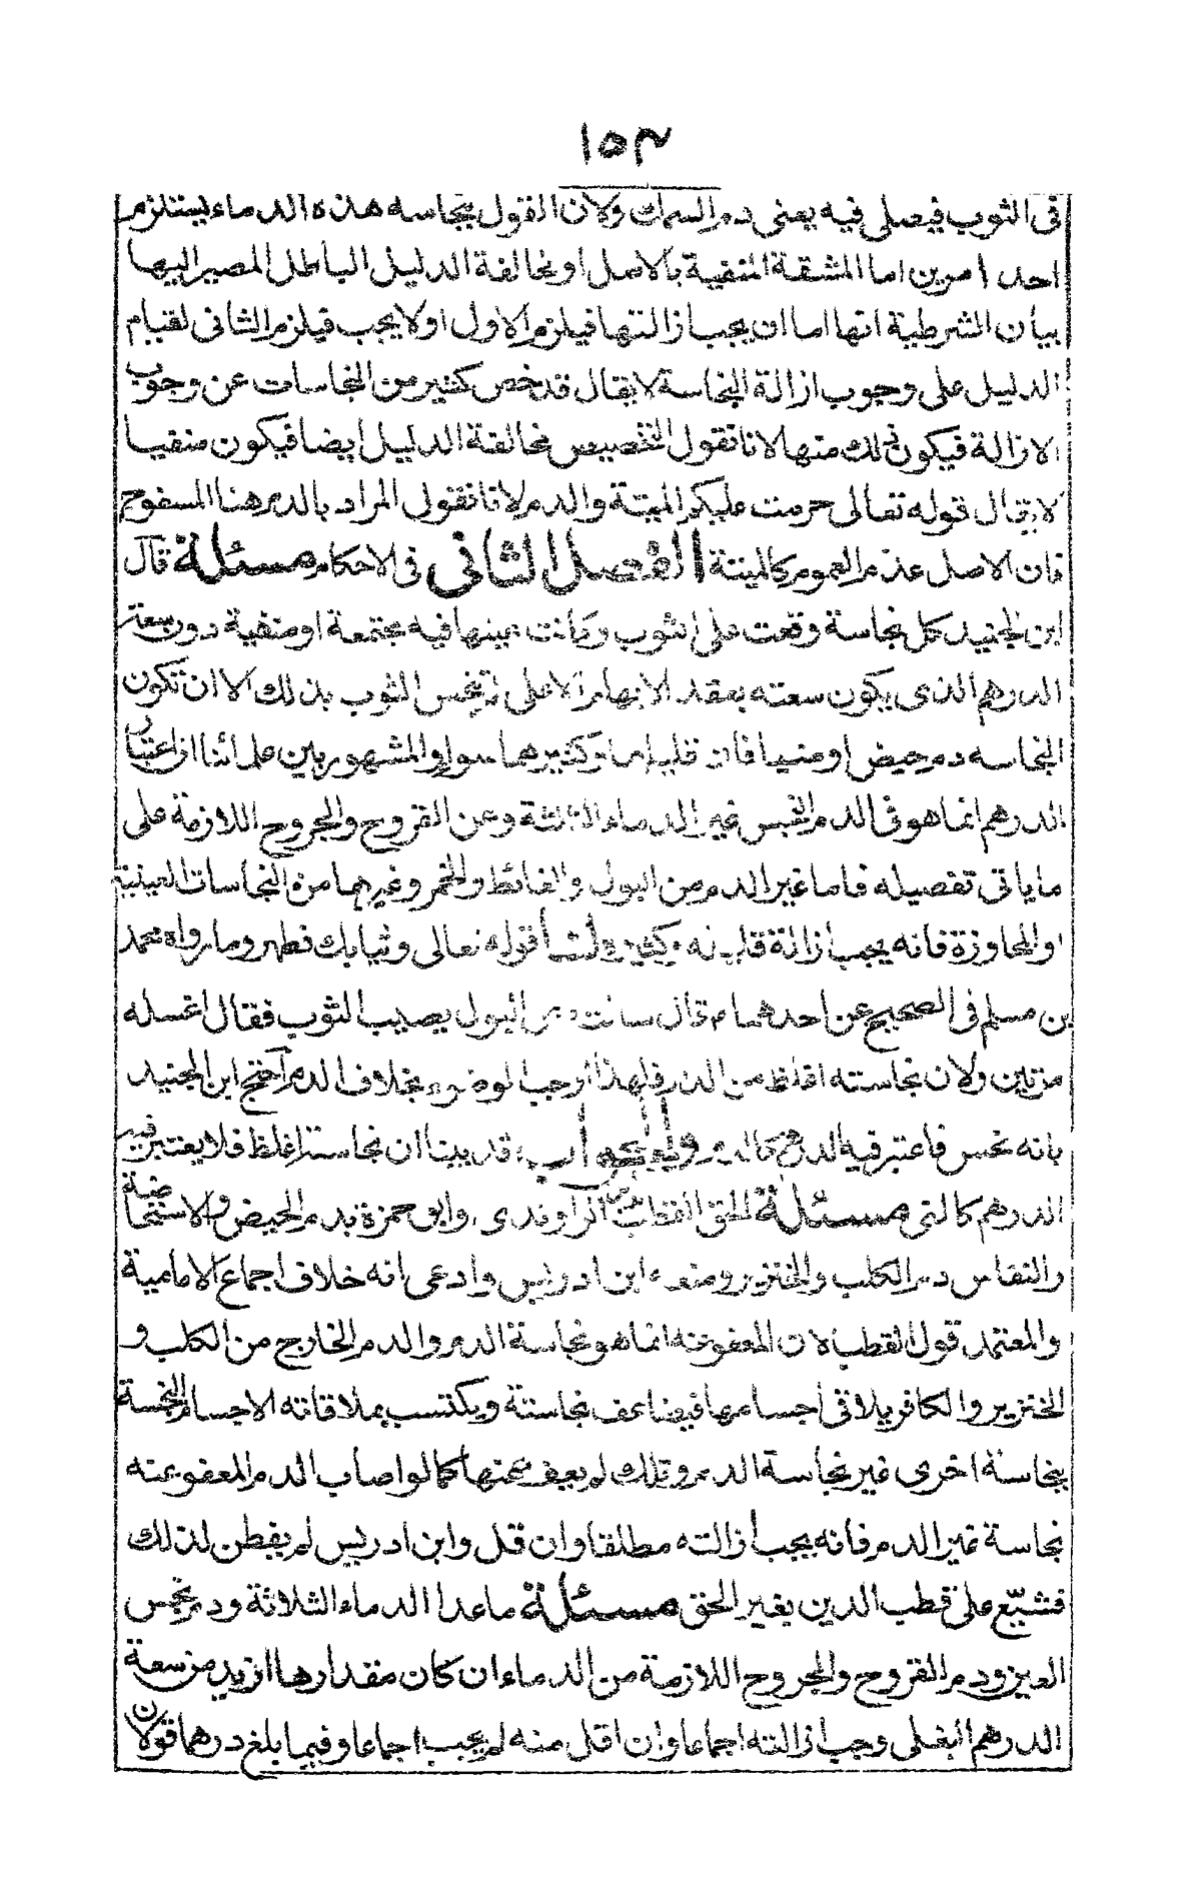 ١٥٣
فى الثوب فيصلى فيه يعنى دم السمك ولان القول بنجاسه هذه الدماء يستلزم
احد امرين اما المشقة المنفية بالاصل او مخالفة الدليل الباطل المصير اليها
بيان الشرطية انها اما ان يجب ازالتها فيلزم الاول او لا يجب فيلزم الثانى لقيام
الدليل على وجوب ازالة النجاسة لا يقال قد خص كثير من النجاسات عن وجوب
الازالة فيكون ذلك منها لانا نقول التخصيص مخالفة الدليل ايضا فيكون منفيا
لا يقال قوله تعالى حرمت عليكم الميتة والدم لانا نقول المراد بالدم هنا المسفوح
فان الاصل عدم العموم كالميتة الفصل الثانى فى الاحكام مسئلة قال
ابن الجنيد كل نجاسة وقعت على ثوب وكانت عينها فيه مجتمعة او منفية دون سعة
الدرهم الذى يكون سعته بعقد الابهام الاعلى لم ينجس الثوب بذلك الا ان تكون
النجاسه دم حيض او منيا فان قليلهما وكثيرهما سواء والمشهور بين علمائنا ان اعتبار
الدرهم انما هو فى الدم النجس غير الدماء الثلثة وعن القروح والجروح اللازمة على
ما ياتى تفصيله فاما غير الدم من البول والغائط والخمر وغيرهما من النجاسات العينية
والمجاوزة فانه يجب ازالة قليله وكثيره ولنا قوله تعالى وثيابك فطهر وما رواه محمد
بن مسلم فى الصحيح عن احدهما م قال سالت عن البول يصيب الثوب فقال اغسله
مرتين ولان نجاسته اغلظ من الدم ولهذا اوجب الوضوء بخلاف الدم احتج ابن الجنيد
بانه نجس فاعتبر فيه الدرهم كالدم والجواب قد بينا ان نجاسته اغلظ فلا يعتبر فيه
الدرهم كالمنى مسئلة الحق القطب الراوندى وابو حمزة بدم الحيض والاستحاضة
والنفاس دم الكلب والخنزير ومنعه ابن ادريس وادعى انه خلاف اجماع الامامية
والمعتمد قول القطب لان المعفو عنه انما هو نجاسة الدم والدم الخارج من الكلب و
الخنزير والكافر يلاقى اجسامها فيضاعف نجاسته ويكتسب بملاقاته الاجسام النجسة
بنجاسة اخرى غير نجاسة الدم وتلك لم يعف عنها كما لو اصاب الدم المعفو عنه
نجاسة غير الدم فانه يجب ازالته مطلقا وان قل وابن ادريس لم يفطن لذلك
فشنّع على قطب الدين بغير الحق مسئلة ما عدا الدماء الثلاثة ودم نجس
العين ودم القروح والجروح اللازمة من الدماء ان كان مقدارها ازيد من سعة
الدرهم البغلى وجب ازالته اجماعا وان اقل منه لم يجب اجماعا وفيما بلغ درهما قولان